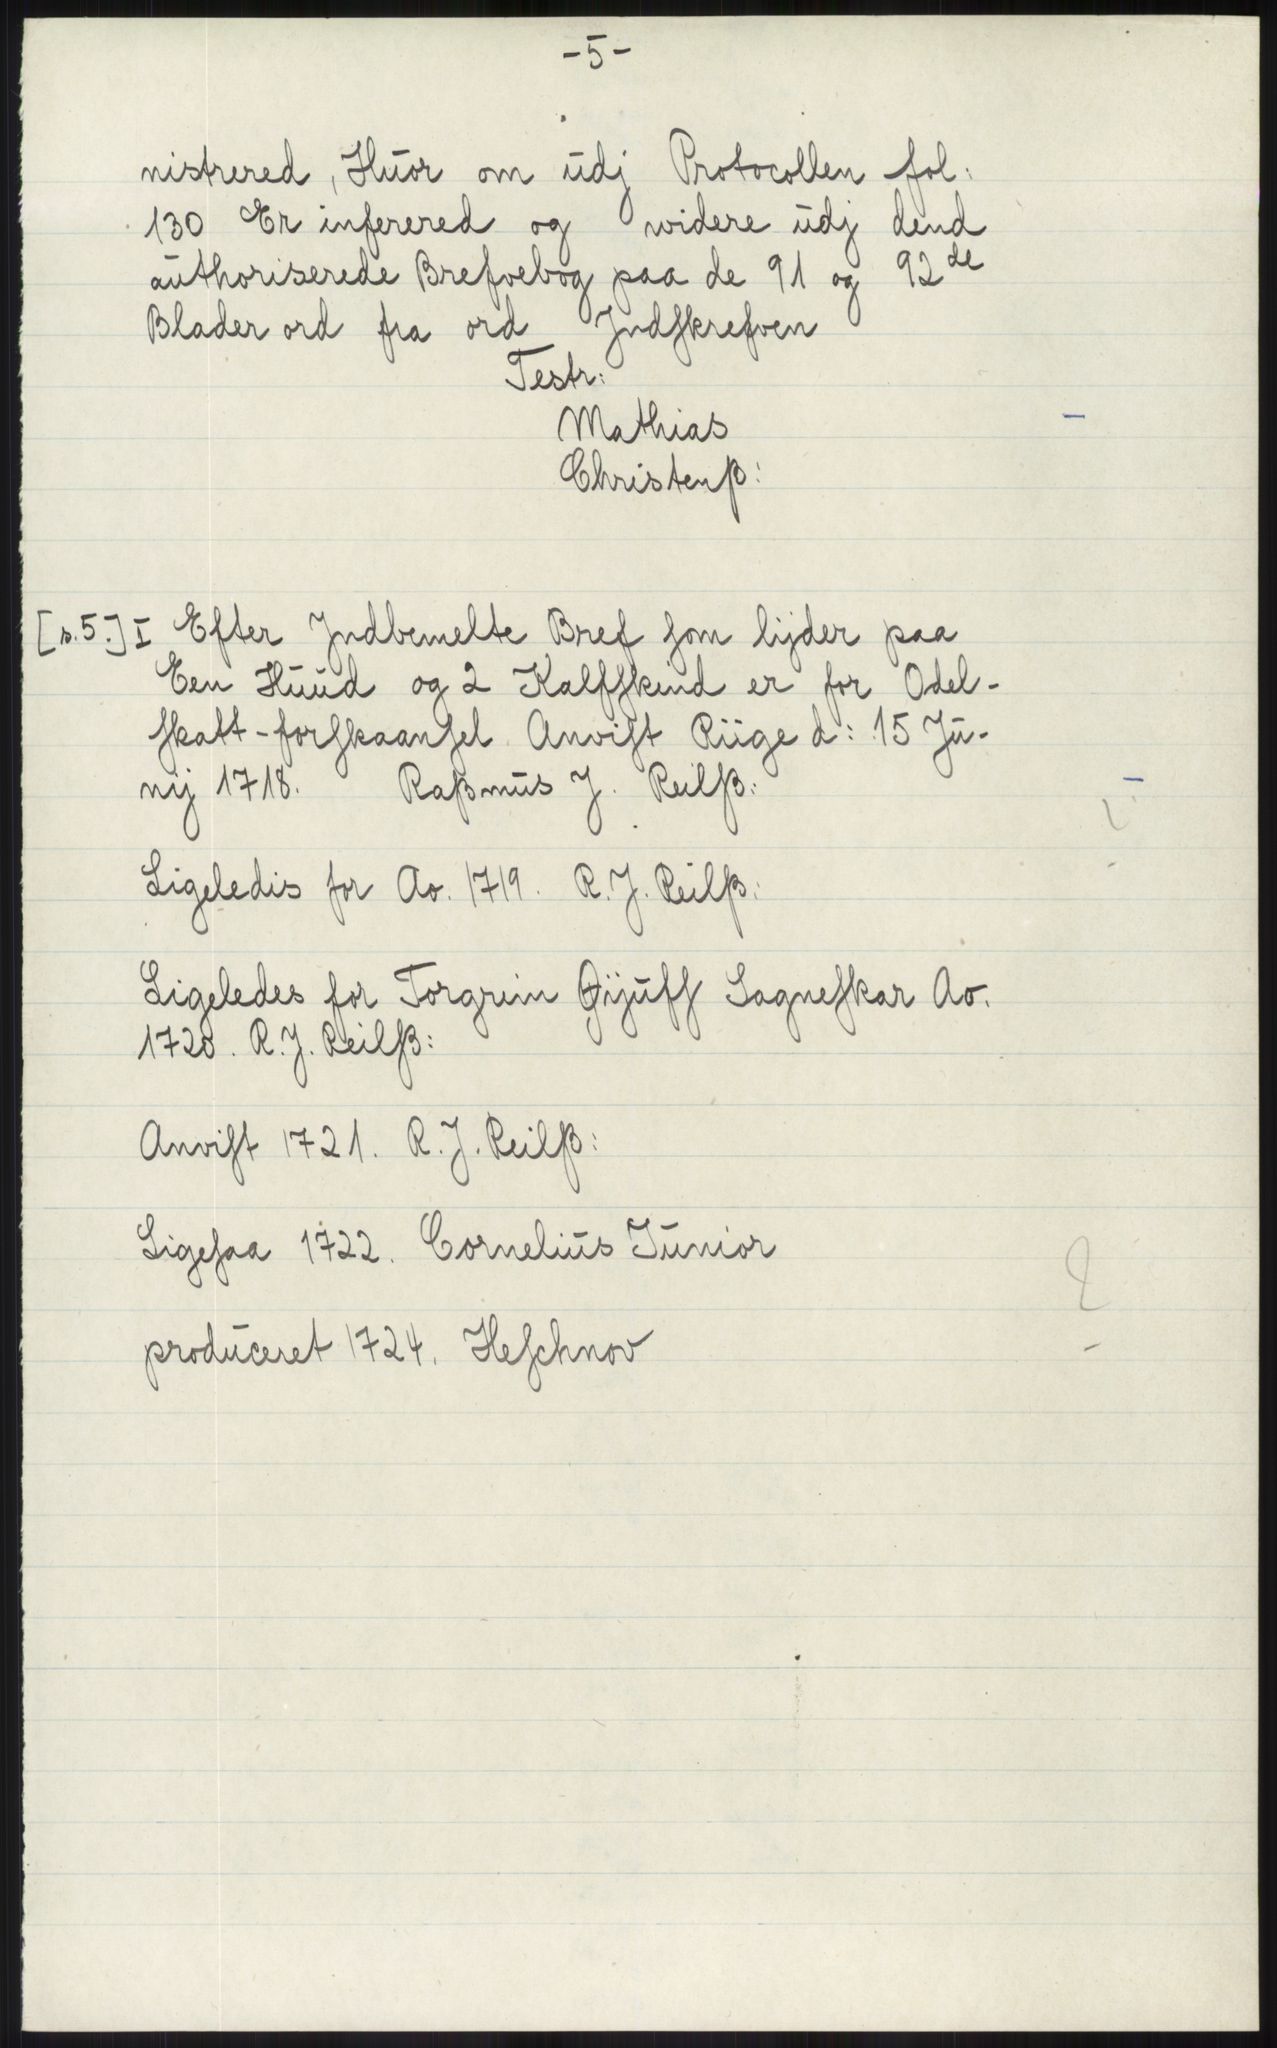 -5-
nistrered, Huor om udj Protocollen fol:
130 Er inferered og widere udj dend
authoriserede Brefvebog paa de 91 og 92de
Blader ord fra ord Jndskrefven
Testr:
Mathias
Christenß:
[s.5.] I Efter Jndbemelte Bref som lijder paa
Een Huud og 2 Kalfskind er for Odel-
skatt-forskaansel Anvist Riige d: 15 Ju-
nij 1718. Raßmus J. Reilß:
Ligeledis for Ao. 1719. R. J. Reilß:
Ligeledes for Torgrim Sagneskar Ao.
1720. R. J. Reilß:
Anvist 1721. R. J. Reilß:
Ligesaa 1722. Cornelius Junior
produceret 1724. Heschnov